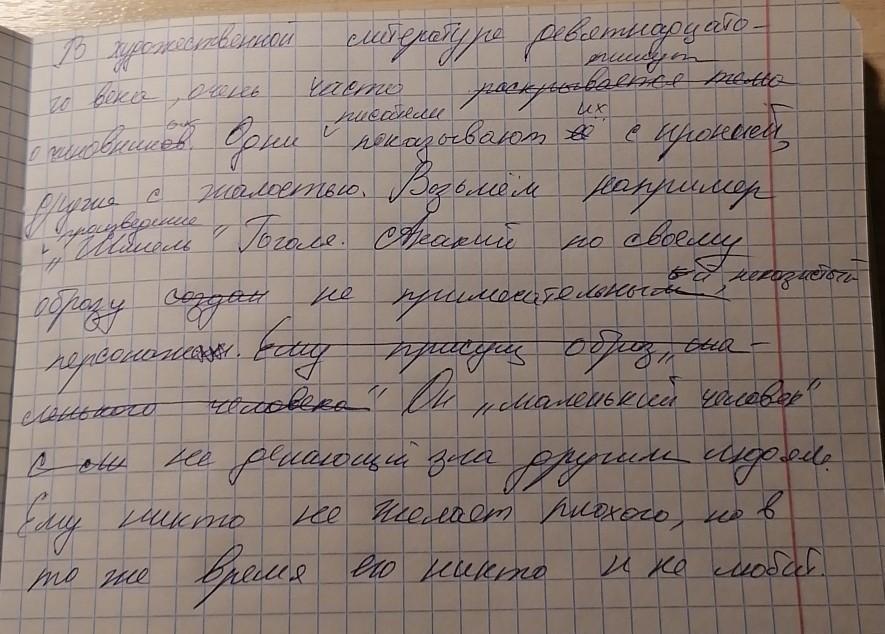 В художественной литературе девятнадцато-
пишут
го века, очень часто раскрывается тема
писатели их
о чиновниках. Одни показывают с иронией,
другие с жалостью. Возьмём например
произведение
„Шинель" Гоголя. Акакий по своему
образу создан не примечательный, неказистый
персонаж. Ему присущ образ „ма-
ленького человека" Он „маленький человек"
не делающий зла другим людям.
Ему никто не желает плохого, но в
то же время его никто и не любит.